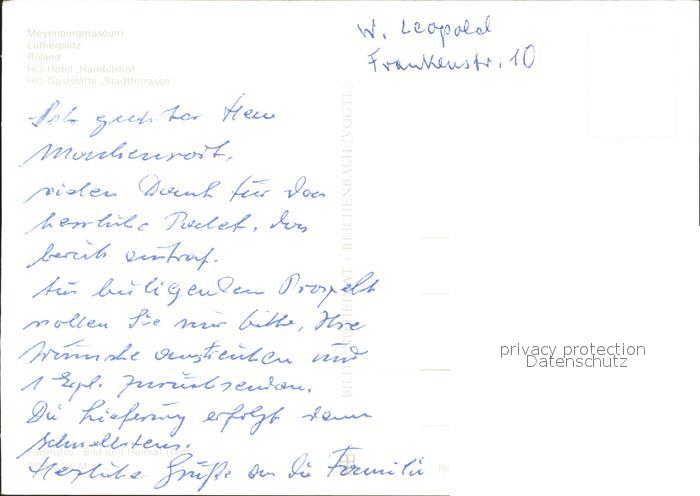 Meyenburgmuseum
Lutherplatz
Roland
HO-Hotel „Handelshof"
HO-Gaststätte „Stadtterrasse"
W. Leopold
Frankenstr. 10
Sehr geehrter Herr
vielen Dank für das
herrliche Paket, das
bereits eintraf.
Im beiligenden Prospekt
wollen Sie nur bitte, Ihre
Wünsche anstreichen und
1 Expl. zurücksenden.
Die Lieferung erfolgt dann
schnellstens.
Herzliche Grüße an die Familie
BILD UND HEIMAT · REICHENBACH (VOGTL)
Farbfotos: Bild und Heimat
privacy protection
Datenschutz